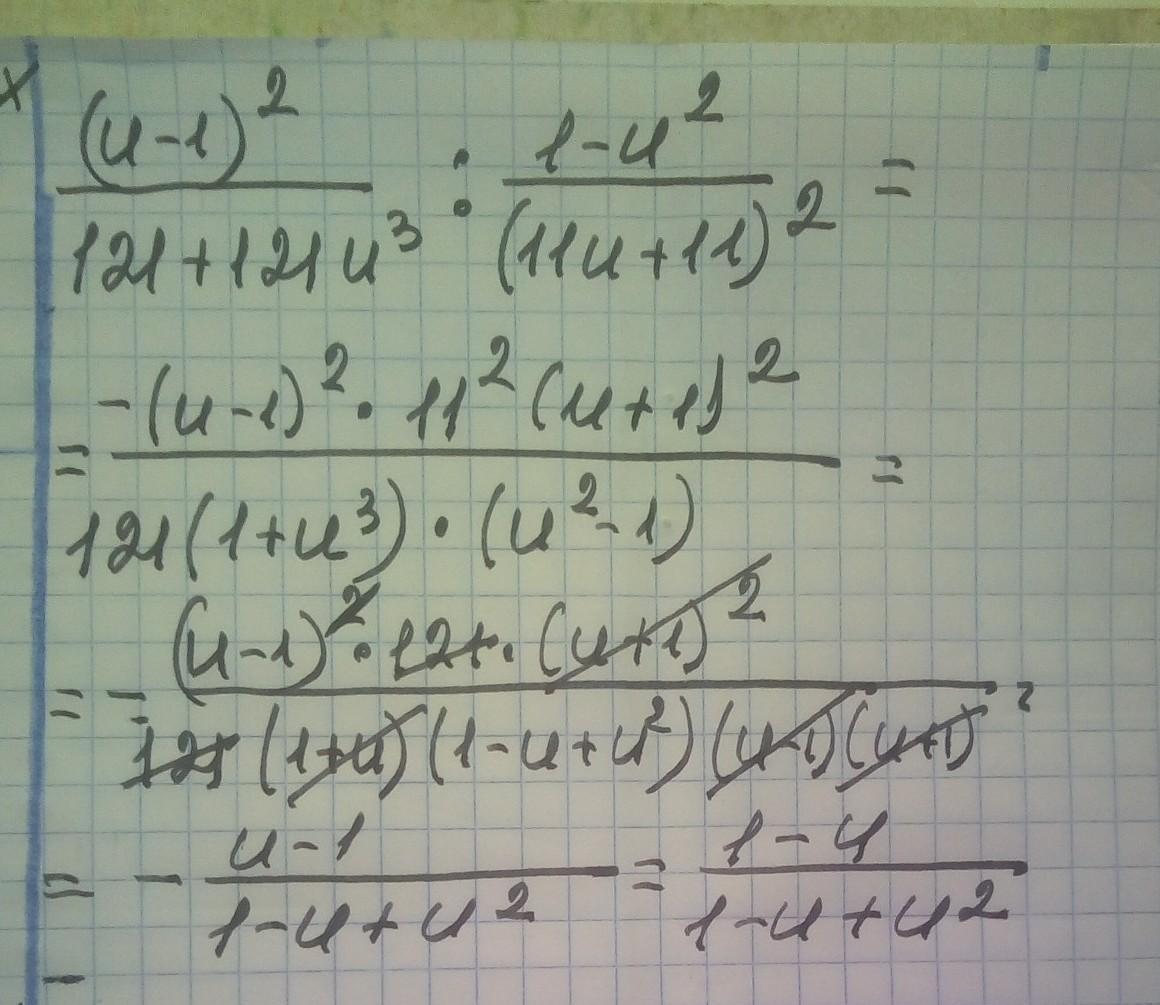 (u-1)² / (121+121u³) : (1-u²) / (11u+11)² =
= -(u-1)² · 11² (u+1)² / 121(1+u³) · (u²-1) =
= - (u-1)² · 121 · (u+1)² / 121 (1+u)(1-u+u²)(u-1)(u+1) =
= - (u-1) / (1-u+u²) = (1-u) / (1-u+u²)